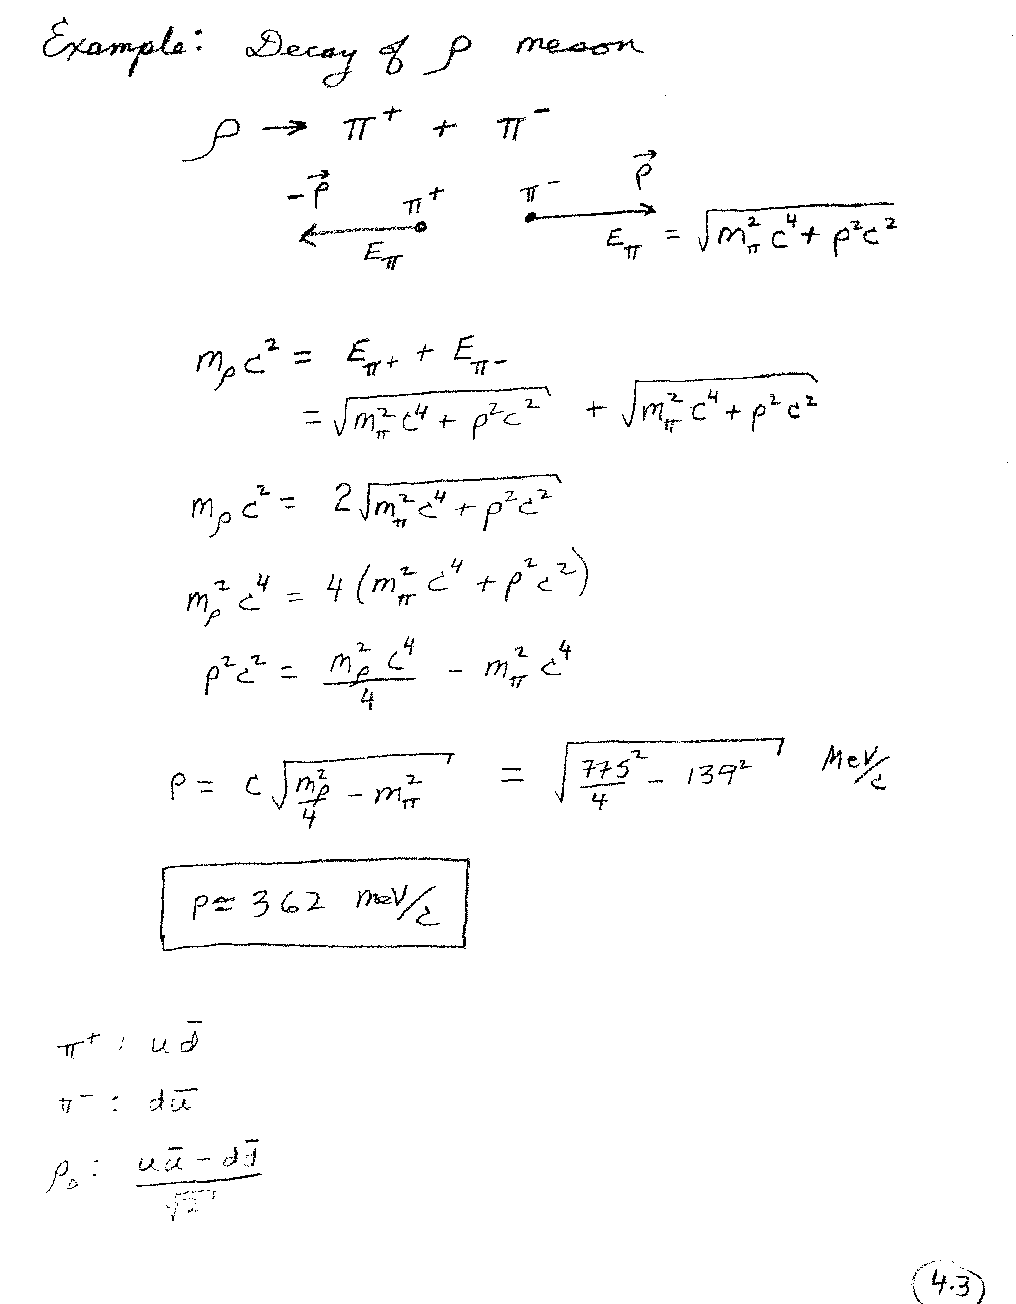 Example: Decay of ρ meson
ρ → π⁺ + π⁻
-p⃗ π⁺ π⁻ p⃗
E_π E_π = √(m_π² c⁴ + p²c²)
m_ρ c² = E_π⁺ + E_π⁻
= √(m_π² c⁴ + p²c²) + √(m_π² c⁴ + p²c²)
m_ρ c² = 2√(m_π² c⁴ + p²c²)
m_ρ² c⁴ = 4(m_π² c⁴ + p²c²)
p²c² = m_ρ² c⁴/4 - m_π² c⁴
p = c√(m_ρ²/4 - m_π²) = √(775²/4 - 139²) MeV/c
p ≃ 362 MeV/c
π⁺: ud̄
π⁻: dū
ρ₀: (uū - dd̄)/√2
4.3